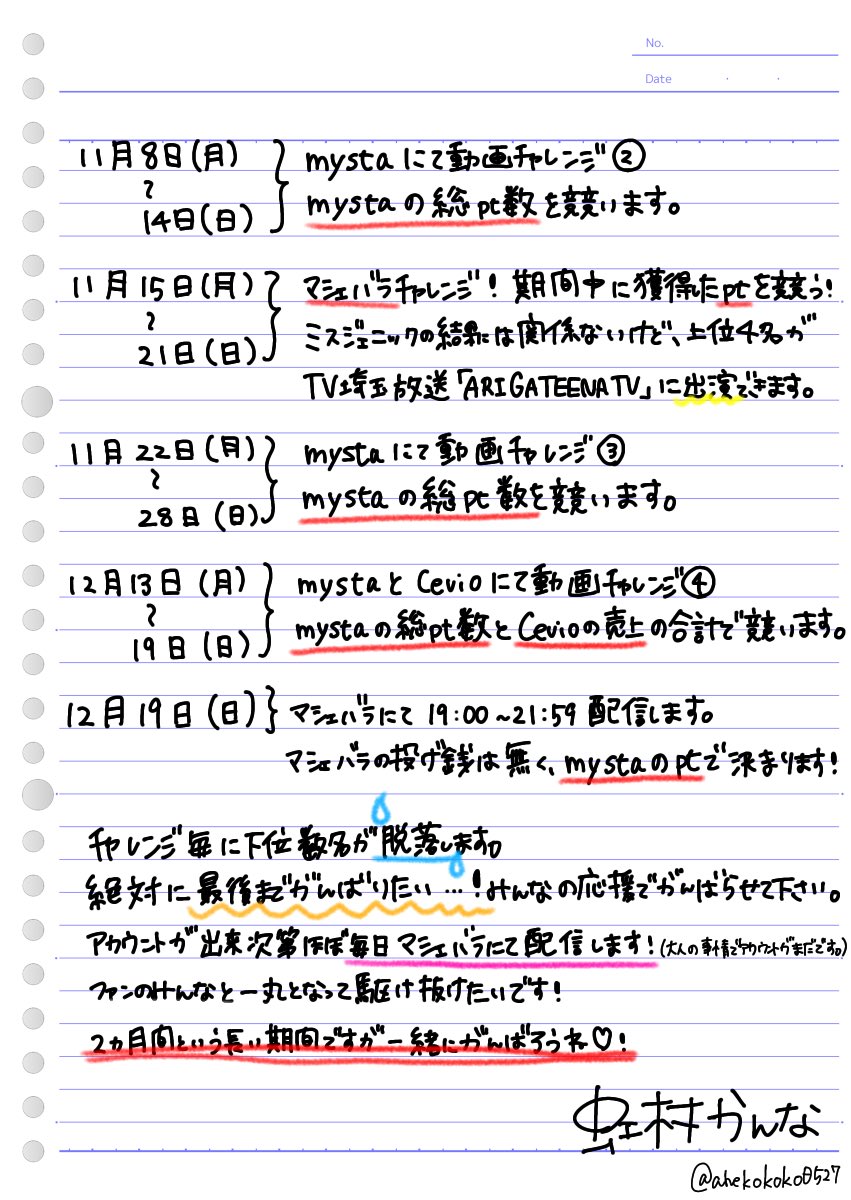 No.
Date
11月8日(月)
~
14日(日)
mystaにて動画チャレンジ②
mystaの総pt数を競います。
11月15日(月)
~
21日(日)
マシェバラチャレンジ!期間中に獲得したptを競う!
ミスジェニックの結果には関係ないけど、上位4名が
TV埼玉放送「ARIGATEENATV」に出演できます。
11月22日(月)
~
28日(日)
mystaにて動画チャレンジ③
mystaの総pt数を競います。
12月13日(月)
~
19日(日)
mystaとCevioにて動画チャレンジ④
mystaの総pt数とCevioの売上の合計で競います。
12月19日(日)
マシェバラにて19:00~21:59配信します。
マシェバラの投げ銭は無く、mystaのptで決まります!
チャレンジ毎に下位数名が脱落します。
絶対に最後までがんばりたい…!みんなの応援でがんばらせて下さい。
アカウントが出来次第ほぼ毎日マシェバラにて配信します!(大人の事情でアカウントがまだです。)
ファンのみんなと一丸となって駆け抜けたいです!
2ヵ月間という長い期間ですが一緒にがんばろうね♡!
虹村かんな
@ahekokoko0527